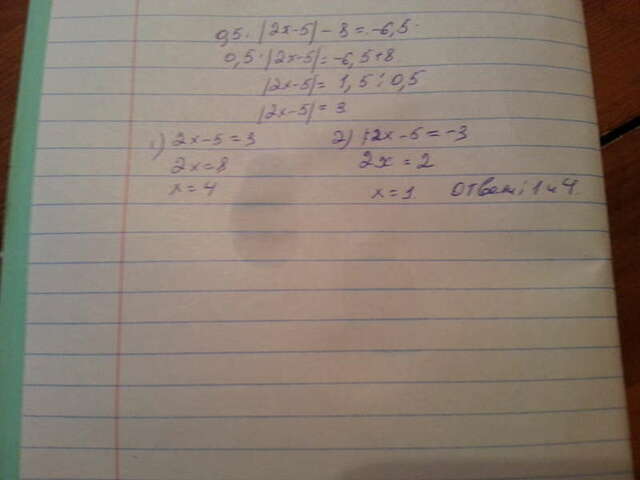 0,5·|2x-5|-8=-6,5
0,5·|2x-5|=-6,5+8
|2x-5|=1,5:0,5
|2x-5|=3
1) 2x-5=3
2x=8
x=4
2) 2x-5=-3
2x=2
x=1
Ответ: 1 и 4